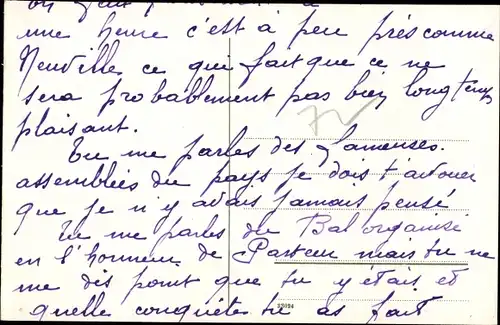 une heure c'est à peu près comme
Neuville ce qui fait que ce ne
sera probablement pas bien longtemps
plaisant.
Tu me parles des fameuses
assemblées du pays je dois t'avouer
que je n'y avais jamais pensé
Tu me parles du Bal organisé
en l'honneur de Pasteur mais tu ne
me dis point que tu y étais et
quelle conquête tu as fait
22024